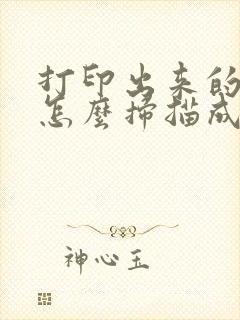 打印出来的
怎麼掃描成
神心玉